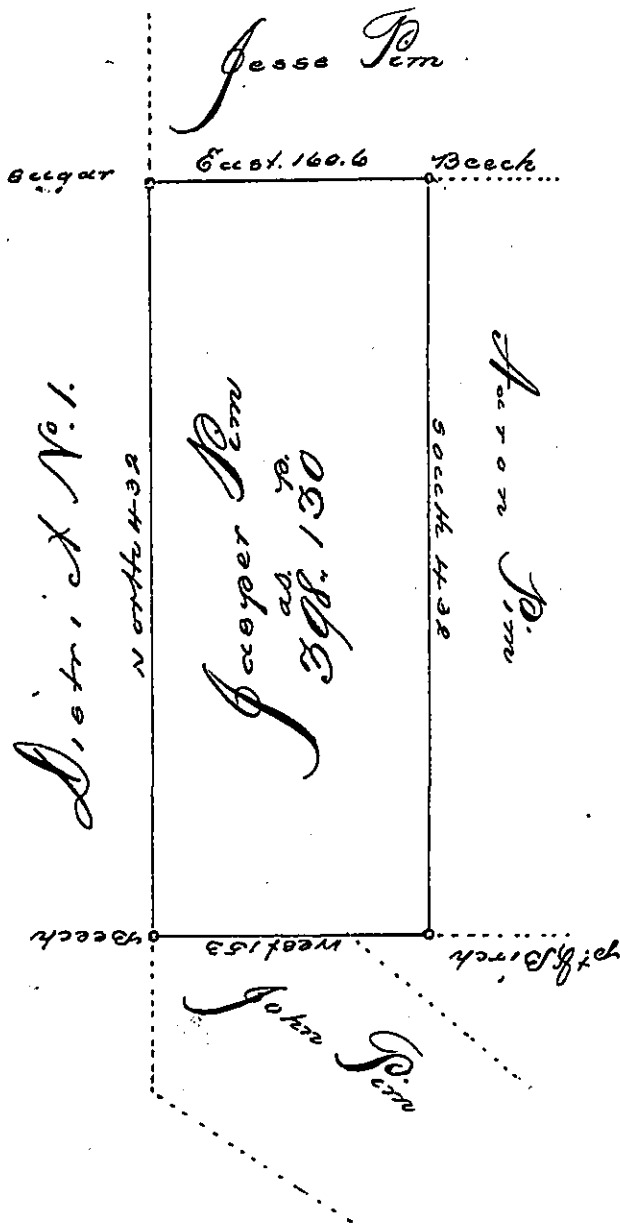 Jesse Pim
Sugar
East. 160.6
Beech
District No. 1.
North 432
Jasper Pim
as. ps.
398, 130
South 432
Aaron Pim
Beech
West 153
John Pim